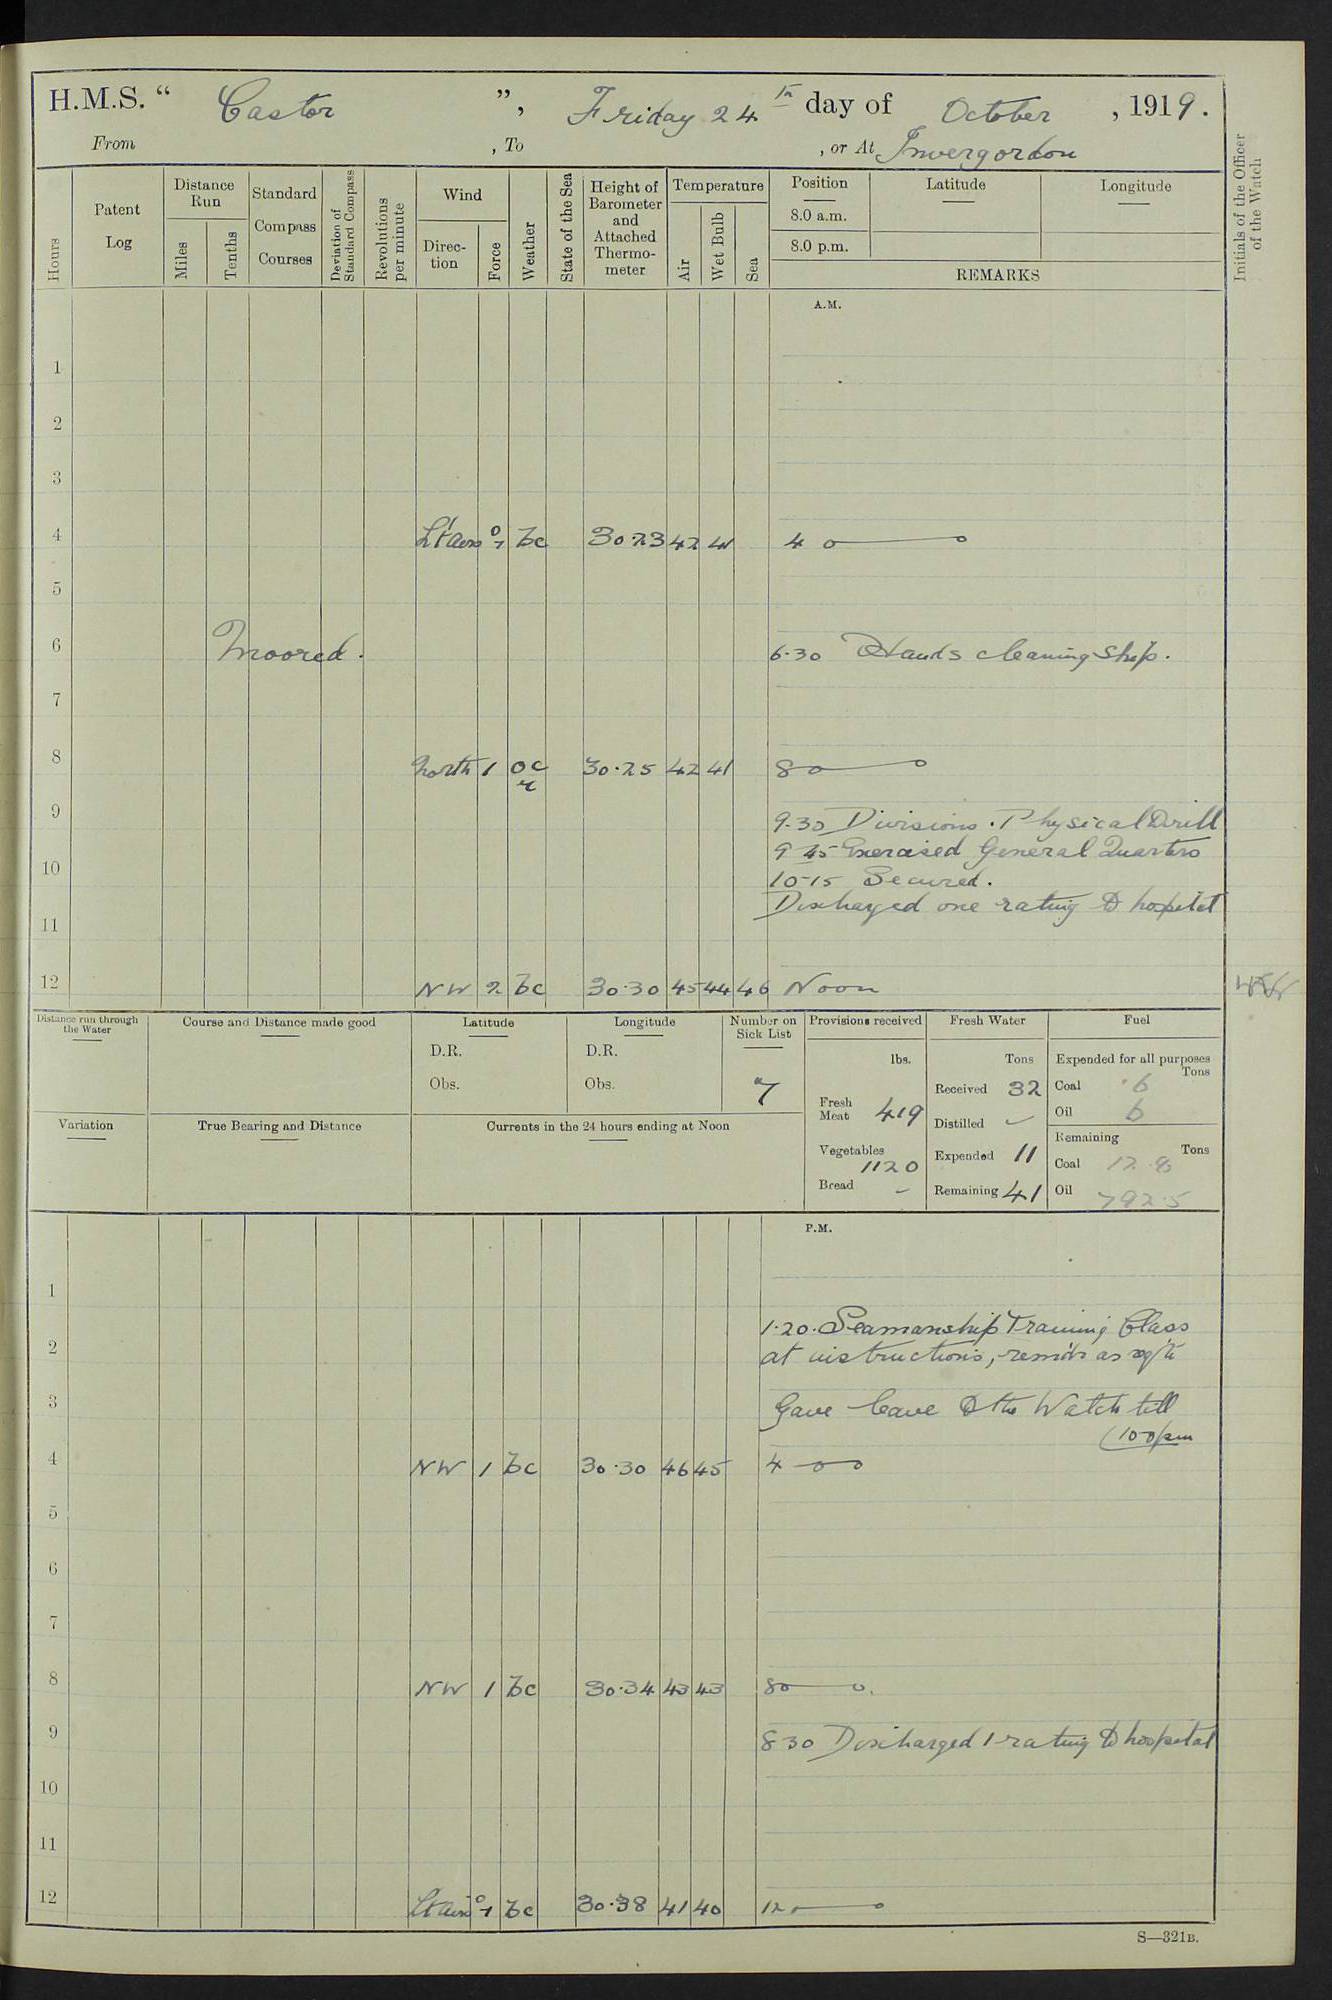 H.M.S. “ Castor ”, Friday 24th day of October , 1919.
From , To , or At Invergordon
Hours
Patent Log
Distance Run
Miles
Tenths
Standard Compass Courses
Deviation of Standard Compass
Revolutions per minute
Wind
Direction
Force
Weather
State of the Sea
Height of Barometer and Attached Thermometer
Temperature
Air
Wet Bulb
Sea
Position
8.0 a.m.
8.0 p.m.
Latitude
Longitude
REMARKS
Initials of the Officer of the Watch
A.M.
1
2
3
4 Lt airs 0-1 bc 30.23 42 41 4
5
6 Moored. 6.30 Hands cleaning Ship.
7
8 North 1 oc r 30.25 42 41 8
9 9.30 Divisions. Physical Drill
9 45 Exercised General Quarters
10 10-15 Secured.
Discharged one rating to hospital
11
12 NW 2 bc 30.30 45 44 46 Noon
Distance run through the Water
Course and Distance made good
Latitude
D.R.
Obs.
Longitude
D.R.
Obs.
Number on Sick List
7
Provisions received
lbs.
Fresh Meat 419
Vegetables 1120
Bread –
Fresh Water
Tons
Received 32
Distilled –
Expended 11
Remaining 41
Fuel
Expended for all purposes
Tons
Coal .6
Oil 6
Remaining
Tons
Coal 12.8
Oil 792.5
Variation
True Bearing and Distance
Currents in the 24 hours ending at Noon
P.M.
1
1.20. Seamanship Training Class
2 at instructions, remdr as reqte
3 Gave leave to the Watch till
10 0 pm
4 NW 1 bc 30.30 46 45 4
5
6
7
8 NW 1 bc 30.34 43 43 8
9 8 30 Discharged 1 rating to hospital
10
11
12 Lt airs 0-1 bc 30.38 41 40 12
S—321B.